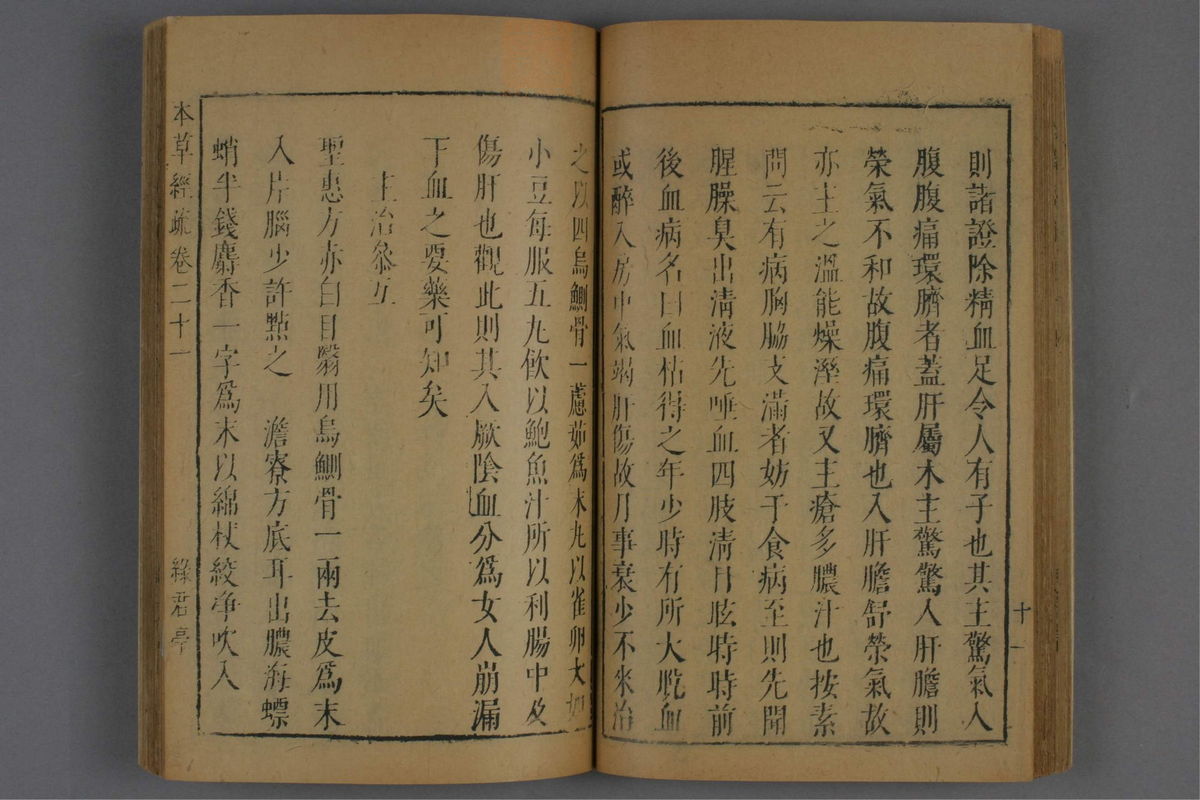 則諸證除精血足令人有子也其主驚氣入
腹腹痛環臍者蓋肝屬木主驚驚入肝膽則
榮氣不和故腹痛環臍也入肝膽舒榮氣故
亦主之溫能燥溼故又主瘡多膿汁也按素
問云有病胸脇支滿者妨于食病至則先聞
腥臊臭出淸液先唾血四肢淸目眩時時前
後血病名曰血枯得之年少時有所大脫血
或醉入房中氣竭肝傷故月事衰少不來治
十一
之以四烏鰂骨一藘茹爲末丸以雀卵大如
小豆每服五丸飮以鮑魚汁所以利腸中及
傷肝也觀此則其入厥陰血分爲女人崩漏
下血之要藥可知矣
主治叅互
聖惠方赤白目翳用烏鰂骨一兩去皮爲末
入片腦少許點之　澹寮方底耳出膿海螵
蛸半錢麝香一字爲末以綿杖絞净吹入
本草經疏卷二十一
綠君亭